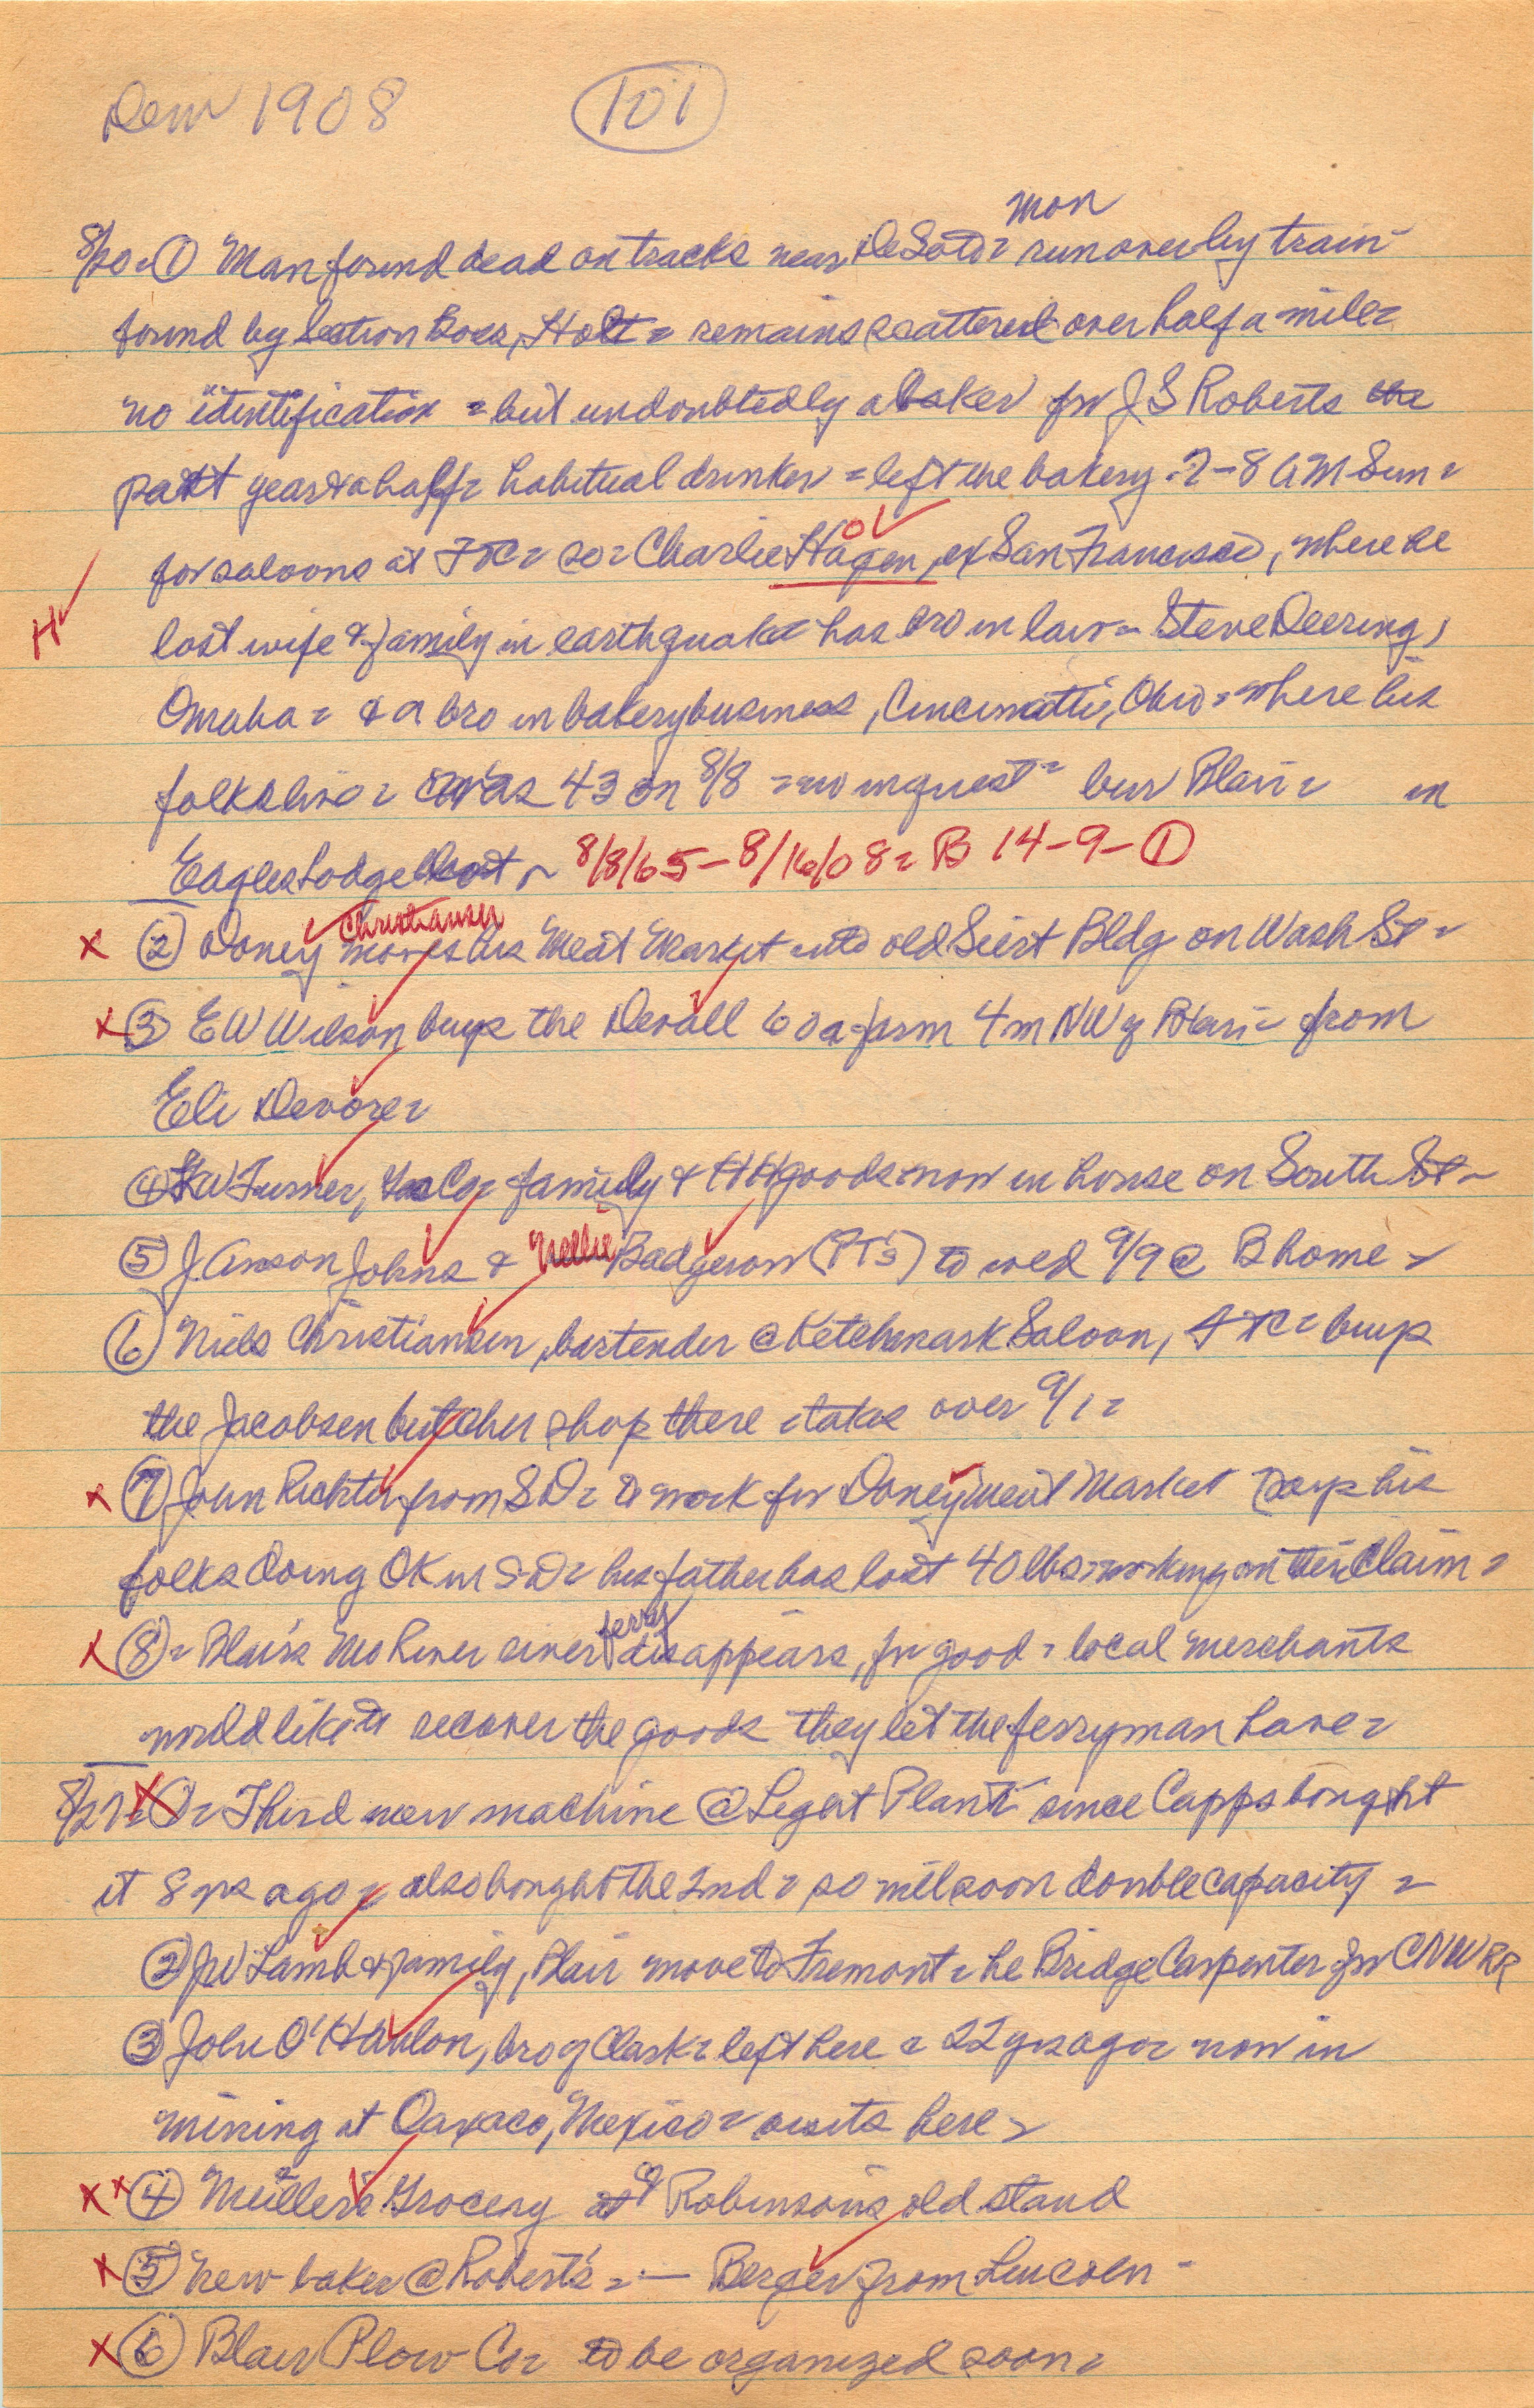 Dem 1908 101
Mon
8/20= ① Man found dead on tracks near DeSoto= run over by train=
found by Section Boss, Holt = remains scattered over half a mile=
no identification = but undoubtedly a baker for J S Roberts the
past year & a half= habitual drinker = left the bakery 7-8 AM Sun=
for saloons at FTC= so= Charlie Hagen, of San Francisco, where he
o
H
lost wife & family in earthquake= has bro in law= Steve Deering,
Omaha= & a bro in bakery business, Cincinatti, Ohio= where his
folks live= was 43 on 8/8 = no inquest= bur Blair= in
Eagles Lodge lot = 8/8/65 - 8/16/08= B 14-9-①
Christiansen
x ② Doney moves his Meat Market into old Seirt Bldg on Wash St=
x ③ E W Wilson buys the Devall 60a farm 4m NW of Blair= from
Eli Devore=
④ W Turner, Co= family & HHgoods now in house on South St=
⑤ J. Anson Johns & Nellie Badgerow (PT's) to wed 9/9 @ B home=
⑥ Niels Christiansen, bartender @ Ketchmark Saloon, FTC= buys
the Jacobsen butcher shop there takes over 9/1=
x ⑦ John Richter from SD= to work for Doney Meat Market Says his
folks doing OK in SD= his father has lost 40 lbs working on their claim=
ferry
x ⑧= Blair's Mo River river disappears, for good= local merchants
would like to recover the goods they let the ferryman have=
8/27= ①= Third new machine @ Light Plant since Capps bought
it 8 yrs ago= also bought the 2nd= so will soon double capacity=
② JW Lamb & family, Blair move to Fremont= he Bridge Carpenter for CNW RR
③ John O'Hanlon, bro of Clark= left here = 22 yrs ago= now in
mining at Oaxaco, Mexico= visits here=
xx ④ Muller's Grocery at Robinson's old stand
x ⑤ New baker @ Robert's = — Berger from Lincoln=
x ⑥ Blair Plow Co= to be organized soon=